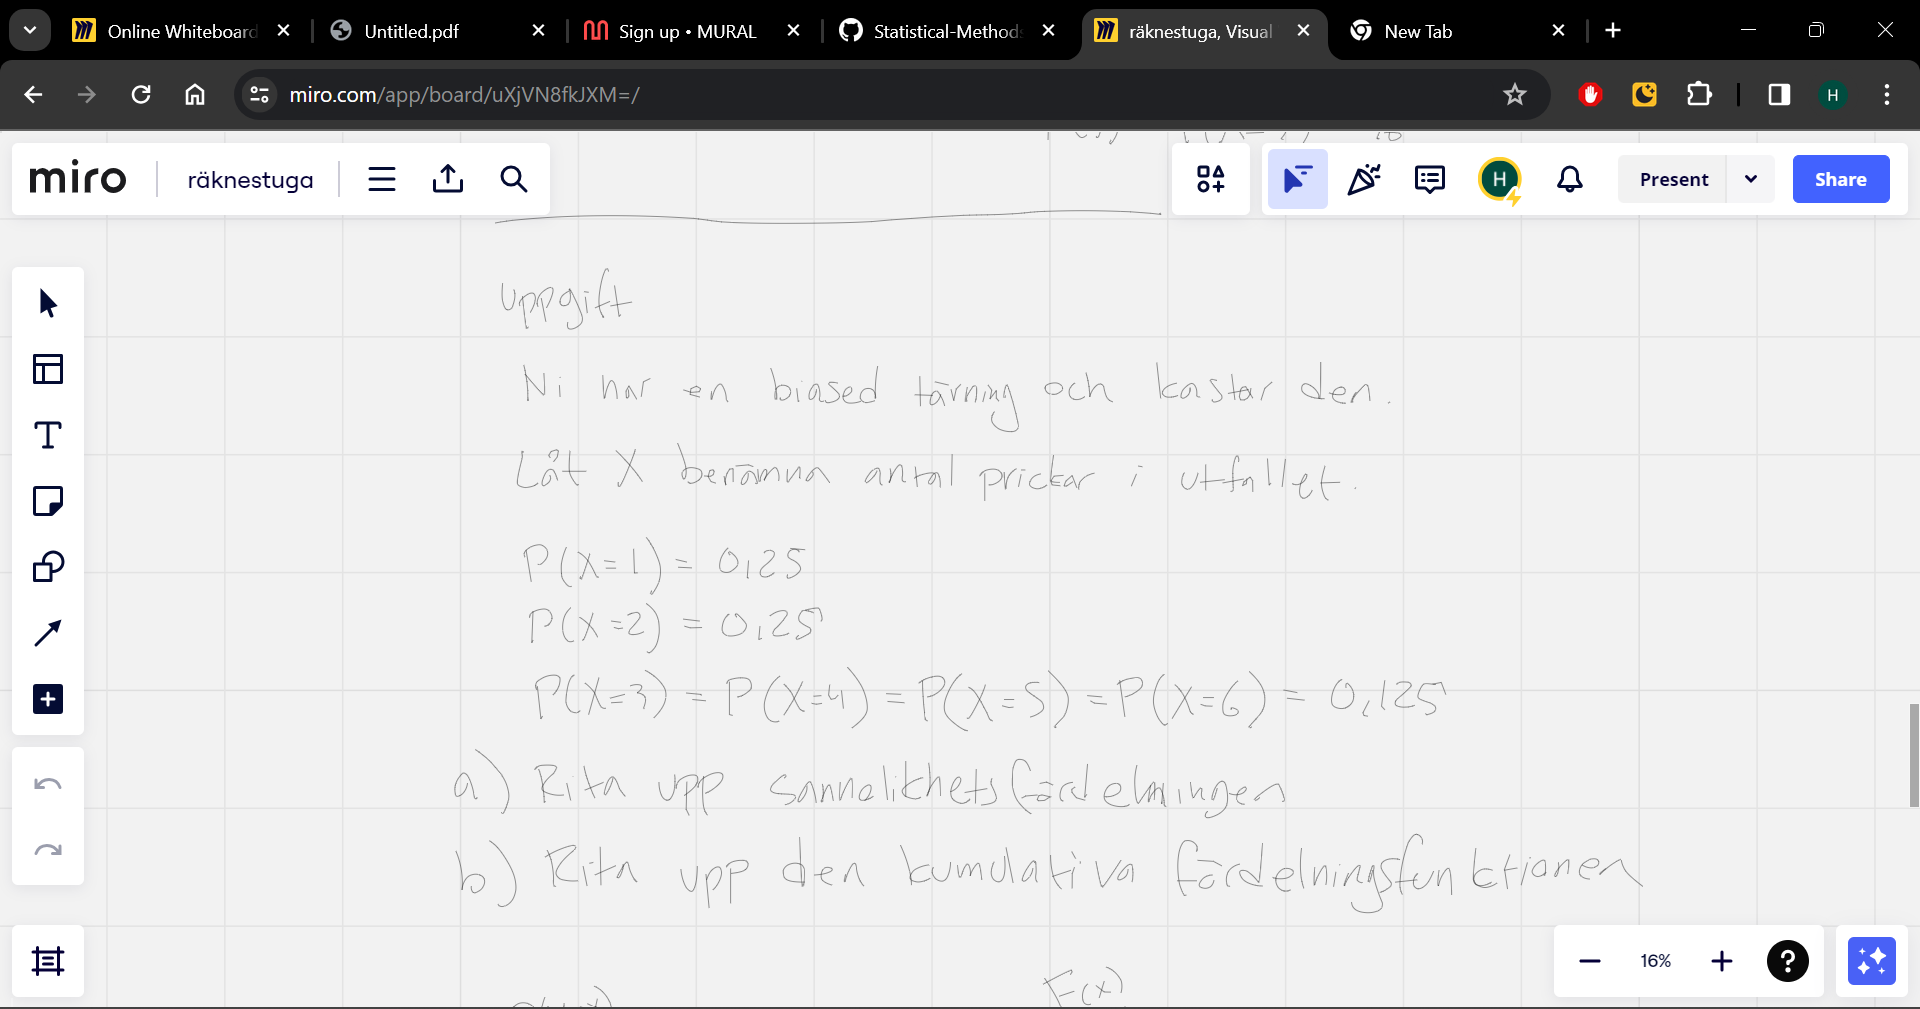 Online Whiteboard
Untitled.pdf
Sign up • MURAL
Statistical-Methods
räknestuga, Visual
New Tab
miro.com/app/board/uXjVN8fkJXM=/
H
miro
räknestuga
H
Present
Share
Uppgift
Ni har en biased tärning och kastar den.
Låt X benämna antal prickar i utfallet.
P(X=1) = 0,25
P(X=2) = 0,25
P(X=3) = P(X=4) = P(X=5) = P(X=6) = 0,125
a) Rita upp sannolikhetsfördelningen
b) Rita upp den kumulativa fördelningsfunktionen
F(x)
16%